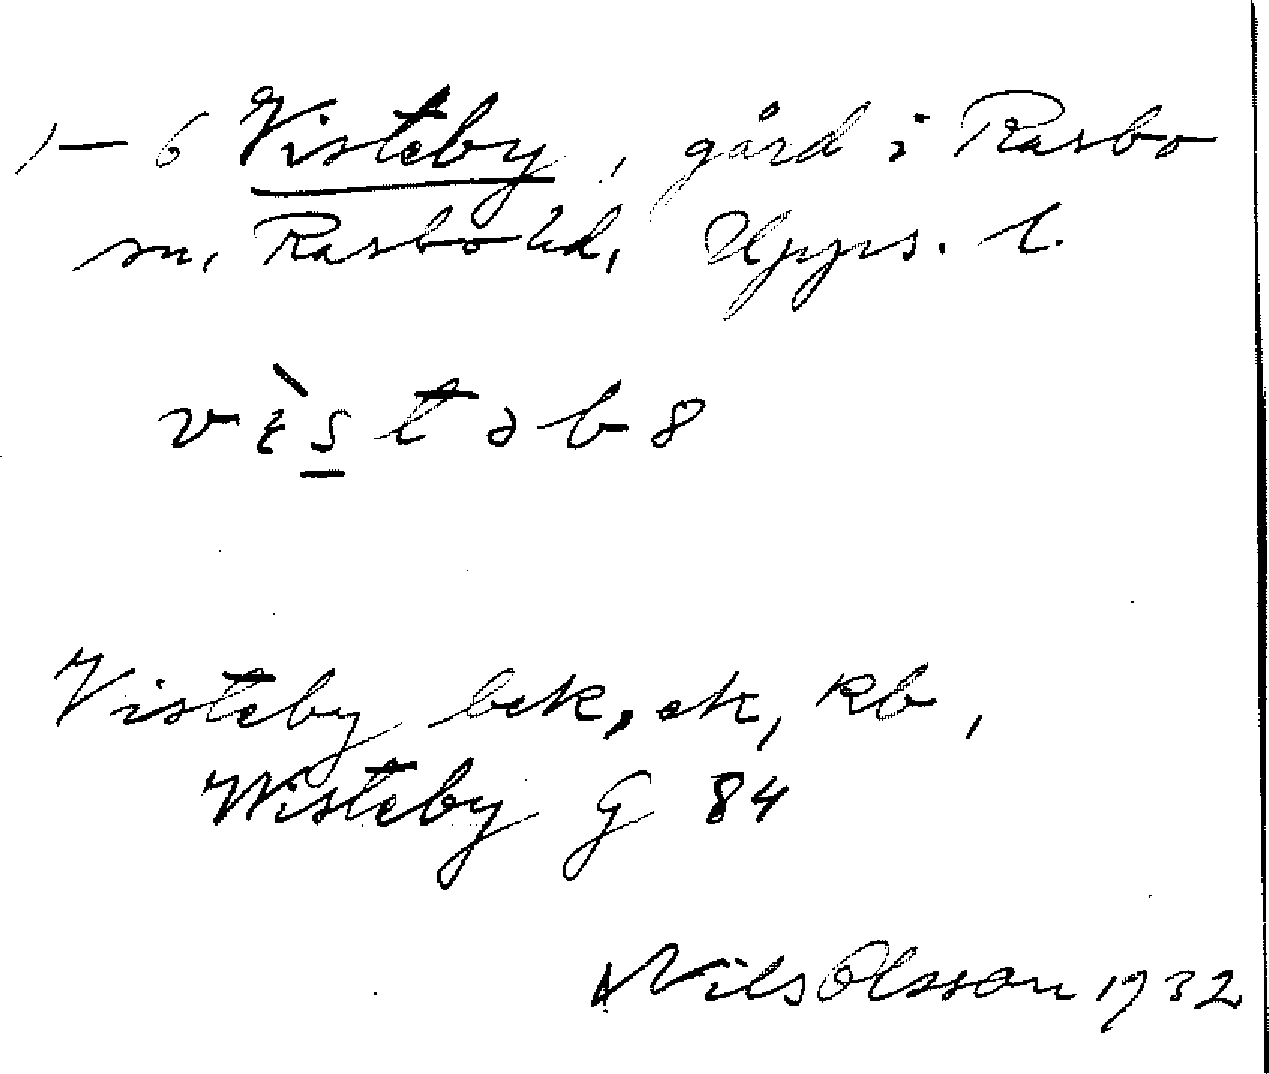 1–6 Visteby, gård i Rasbo
sn, Rasbo hd, Upps. l.
vɛ̀s̲təb8
Visteby bek, ek, kb,
Wisteby G 84
Nils Olsson 1932